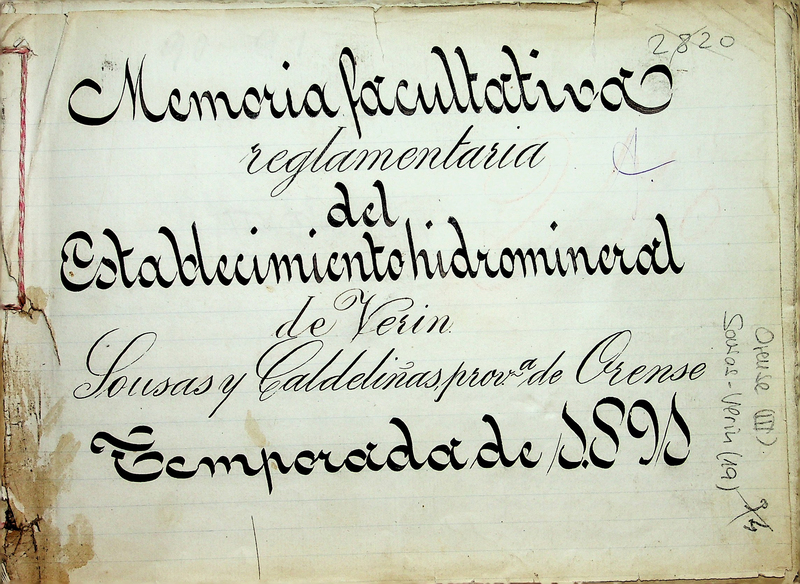 2820
Memoria facultativa
reglamentaria
del
Establecimiento hidromineral
de Verin
Sousas y Caldeliñas, provª de Orense
Temporada de 1.891
Orense (III)
Sousas-Verín (19)